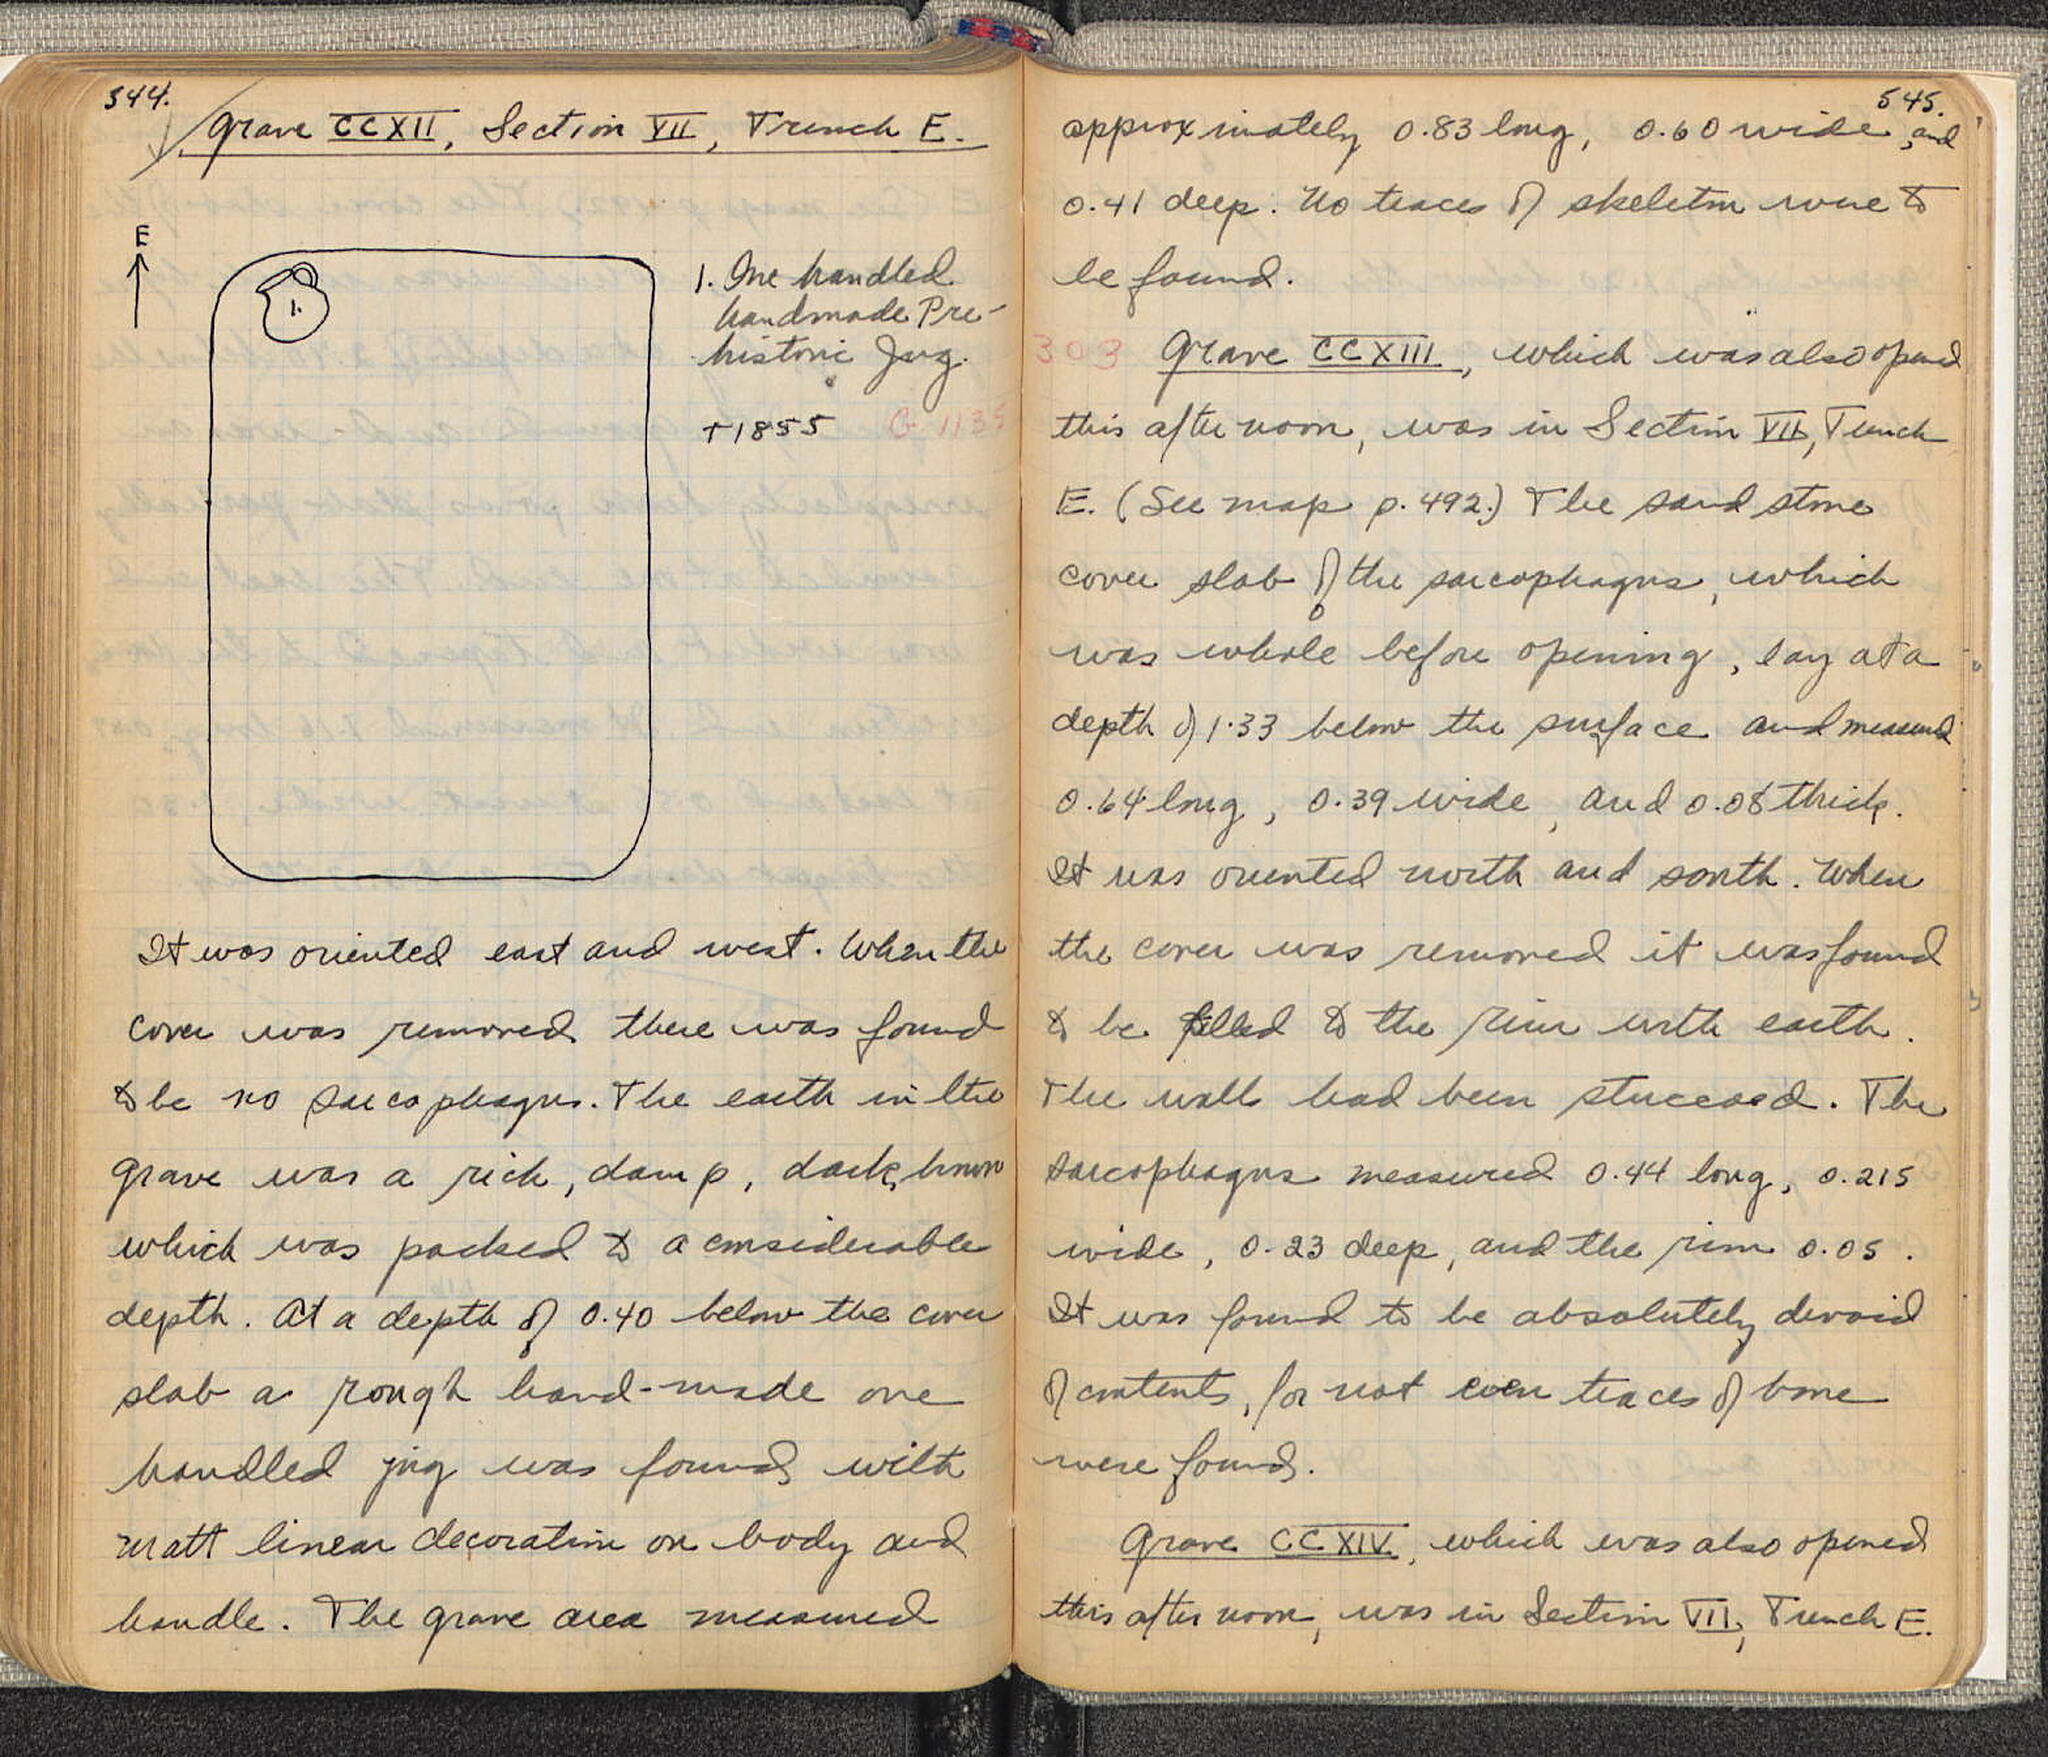 544.
Grave CCXII, Section VII, Trench E.
E
1.
1. One handled
handmade Pre-
historic Jug.
T1855
It was oriented east and west. When the
cover was removed there was found
to be no sarcophagus. The earth in the
grave was a rich, damp, dark, brown
which was packed to a considerable
depth. At a depth of 0.40 below the cover
slab a rough hand-made one
handled jug was found with
matt linear decoration on body and
handle. The grave area measured
545.
approximately 0.83 long, 0.60 wide, and
0.41 deep. No traces of skeleton were to
be found.
303 Grave CCXIII, which was also opened
this afternoon, was in Section VII, Trench
E. (See map p. 492.) The sand stone
cover slab of the sarcophagus, which
was whole before opening, lay at a
depth of 1.33 below the surface and measured
0.64 long, 0.39 wide, and 0.08 thick.
It was oriented north and south. When
the cover was removed it was found
to be filled to the rim with earth.
The walls had been stuccoed. The
sarcophagus measured 0.44 long, 0.215
wide, 0.23 deep, and the rim 0.05.
It was found to be absolutely devoid
of contents, for not even traces of bone
were found.
Grave CCXIV, which was also opened
this afternoon, was in Section VII, Trench E.